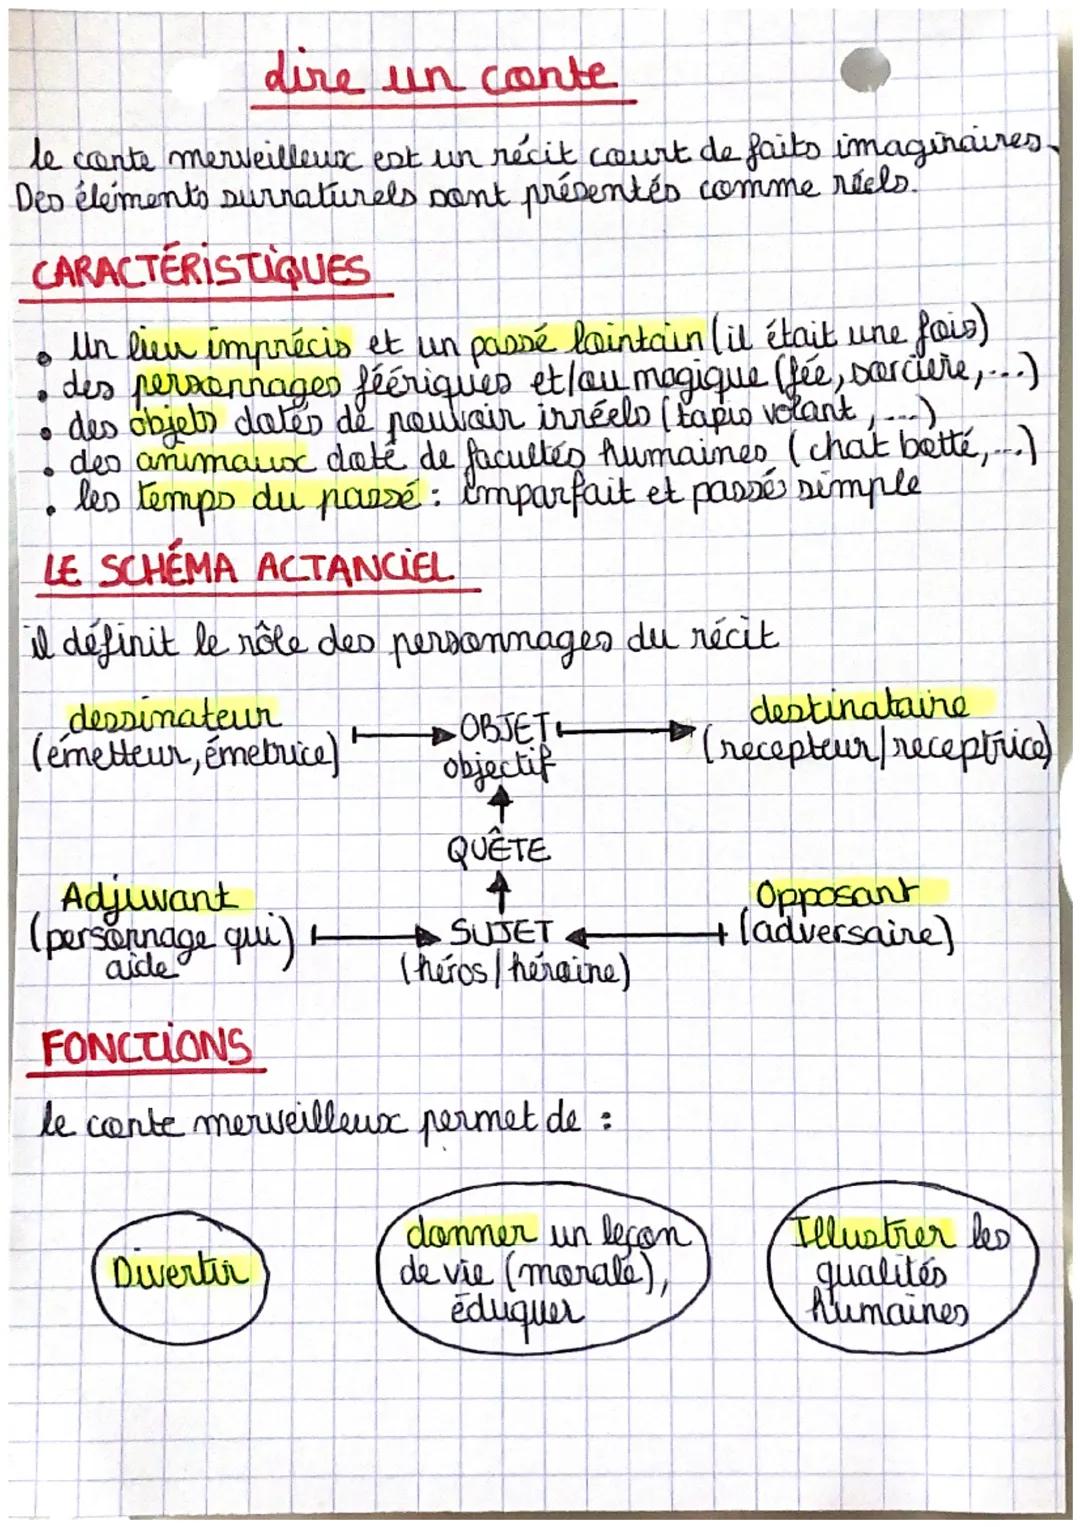 dire un conte
le conte merveilleux est un récit court de faits imaginaires.
Des élements surnaturels sont présentés comme réels.
CARACTÉRISTIQUES
• Un lieu imprécis et un passé lointain (il était une fois)
• des personnages féériques et/ou magique (fée, sorcière,...)
• des objets dotés de pouvoir irréels (tapis volant,...)
• des animaux doté de facultés humaines (chat botté,...)
• les temps du passé : imparfait et passé simple
LE SCHÉMA ACTANCIEL
il définit le rôle des personnages du récit
dessinateur
(émetteur, émetrice)
OBJET
objectif
destinataire
(recepteur/receptrice)
QUÊTE
Adjuvant
(personnage qui)
aide
SUJET
(héros/héroine)
Opposant
(adversaire)
FONCTIONS
le conte merveilleux permet de :
Divertir
donner un leçon
de vie (morale),
éduquer
Illustrer les
qualités
humaines